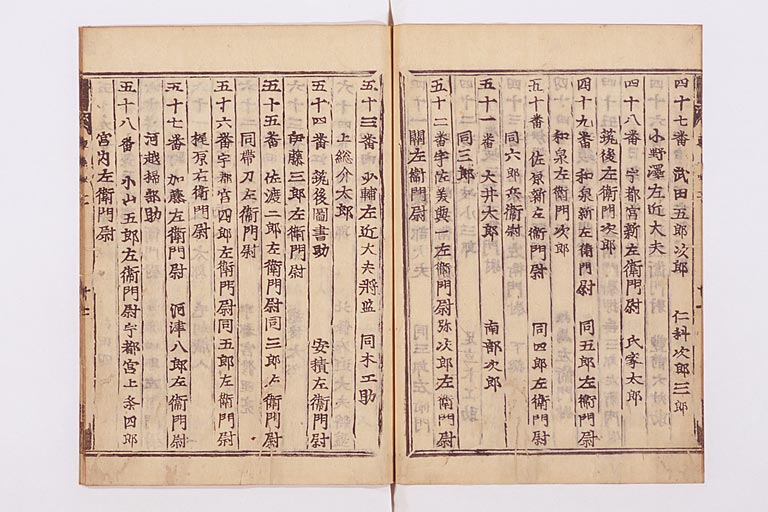 四十七番 武田五郎次郎 仁科次郎三郎
小野澤左近大夫
四十八番 宇都宮新左衛門尉 氏家太郎
筑後左衛門次郎
四十九番 和泉新左衛門尉 同五郎左衛門尉
和泉左衛門次郎
五十番 佐原新左衛門尉 同四郎左衛門尉
同六郎兵衛尉
五十一番 大井太郎 南部次郎
同三郎
五十二番 宇佐美與一左衛門尉 弥次郎左衛門尉
關左衛門尉
五十三番 少輔左近大夫將監 同木工助
上総介太郎
五十四番 筑後圖書助 安積左衛門尉
伊藤三郎左衛門尉
五十五番 佐渡二郎左衛門尉 同三郎左衛門尉
同帶刀左衛門尉
五十六番 宇都宮四郎左衛門尉 同五郎左衛門尉
梶原右衛門尉
五十七番 加藤左衛門尉 河津八郎左衛門尉
河越掃部助
五十八番 小山五郎左衛門尉 宇都宮上条四郎
宮内左衛門尉